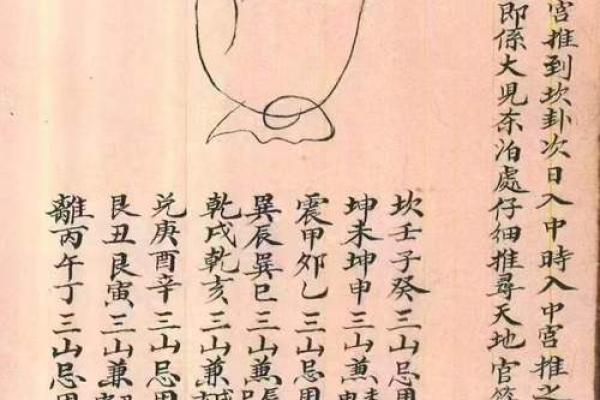 宫推到坎卦次日入中時入中宫推之
即係大兇柰泊處仔細推尋天地官符
坎壬子癸三山忌用
坤未坤申三山兼
震甲夘乙三山忌用
巽辰巽巳三山兼
乾戌乾亥三山兼
兌庚酉辛三山忌用
艮丑艮寅三山兼
離丙午丁三山忌用